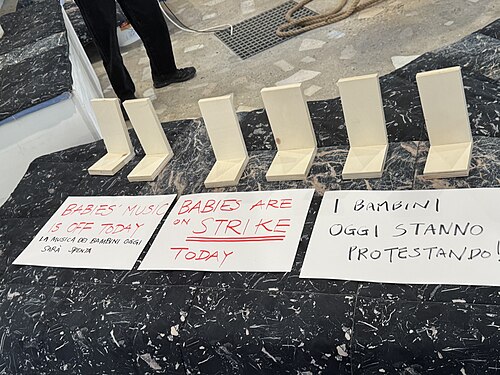 BABIES' MUSIC
IS OFF TODAY
LA MUSICA DEI BAMBINI OGGI
SARÀ SPENTA
BABIES ARE
ON STRIKE
TODAY
I BAMBINI
OGGI STANNO
PROTESTANDO!